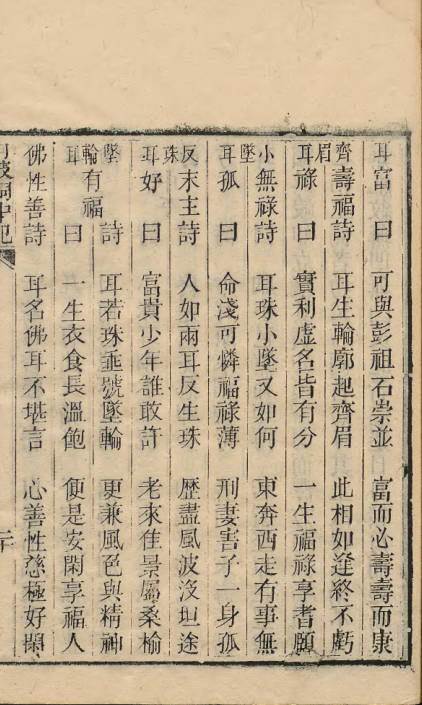 耳富曰 可與彭祖石崇並 富而必壽壽而康
齊眉壽福詩 耳生輪廓起齊眉 此相如逢終不虧
耳祿曰 實利虛名皆有分 一生福祿享耆頤
小墜無祿詩 耳珠小墜又如何 東奔西走有事無
耳孤曰 命淺可憐福祿薄 刑妻害子一身孤
反珠末主詩 人如兩耳反生珠 歷盡風波沒坦途
耳好曰 富貴少年誰敢許 老來佳景屬桑榆
墜輪詩 耳若珠垂號墜輪 更兼風色與精神
耳有福曰 一生衣食長溫飽 便是安閑享福人
佛性善詩 耳名佛耳不堪言 心善性慈極好閑